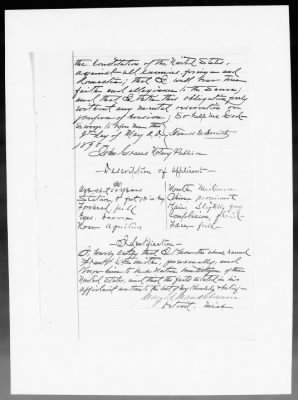 the Constitution of the United States,
against all enemies, foreign and
domestic; that I will bear true
faith and allegiance to the same;
and that I take this obligation freely
without any mental reservation or
purpose of evasion; So help me God
Sworn to before me this
day of May A.D. Frank E. Smith
1895
Notary Public
Description of applicant
Age years Mouth Medium
Stature 5 feet in Chin prominent
Forehead full Hair Slightly gray
Eyes brown Complexion
Nose Aquiline Face full
Identification
I hereby certify that I know the above named
Frank E. Smith, personally, and
know him to be a Native born citizen of the
United States, and that the facts stated in his
affidavit are true to the best of my knowledge & belief
Detroit Mich